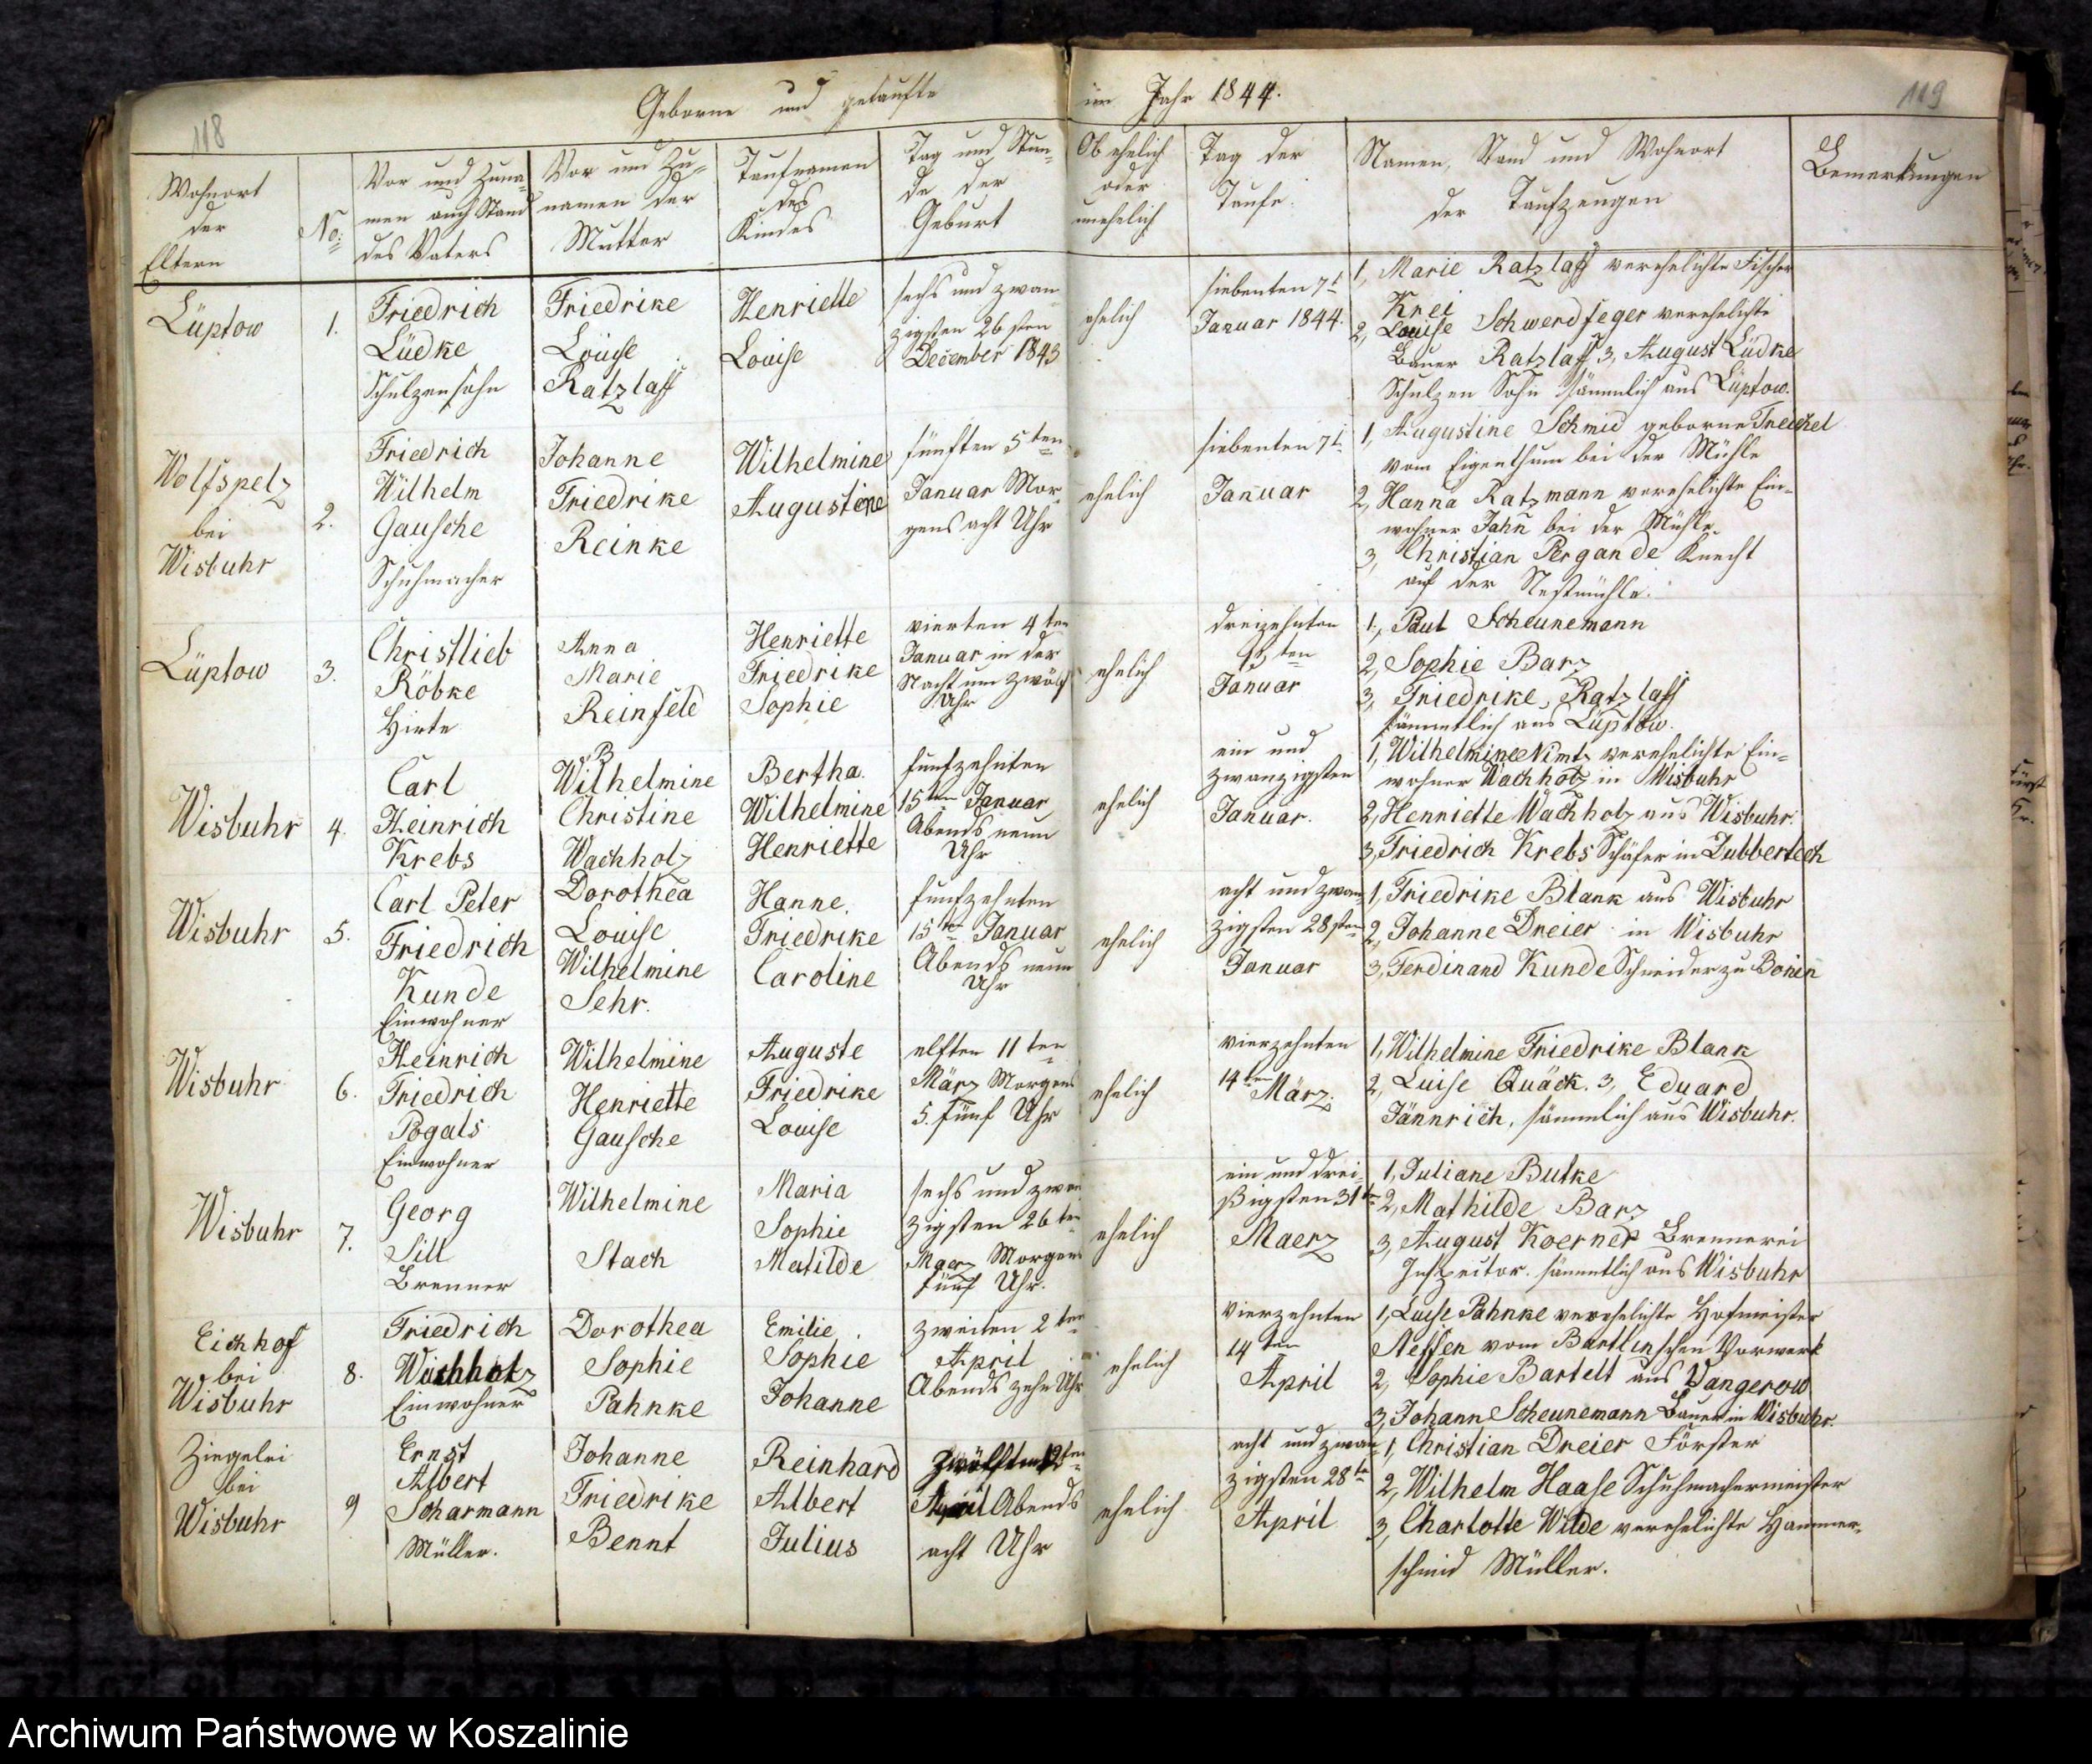 118
Geborne und getaufte im Jahr 1844.
119
Wohnort
der
Eltern
No:
Vor und Zuna-
men auch Stand
des Vaters
Vor und Zu-
namen der
Mutter
Taufnamen
des
Kindes
Tag und Stun-
de der
Geburt
Ob ehelich
oder
unehelich
Tag der
Taufe.
Namen, Stand und Wohnort
der Taufzeugen
Bemerkungen
Lüptow
1.
Friedrich
Lüdke
Schulzensohn
Friedrike
Louise
Ratzlaff
Henriette
Louise
sechs und zwan
zigsten 26sten
December 1843
ehelich
siebenten 7t
Januar 1844.
1, Marie Ratzlaff verehelichte Fischer
Krei
2, Louise Schwerdfeger verehelichte
Bauer Ratzlaff 3, August Lüdke
Schulzen Sohn sämmlich aus Lüptow.
Wolfspelz
bei
Wisbuhr
2.
Friedrich
Wilhelm
Gausche
Schuhmacher
Johanne
Friedrike
Reinke
Wilhelmine
Augustine
fünften 5ten
Januar Mor-
gens acht Uhr
ehelich
siebenten 7t
Januar
1, Augustine Schmid geborne Treichel
vom Eigenthum bei der Mühle
2, Hanna Ratzmann verehelichte Ein-
wohner Jahn bei der Mühle.
3, Christian Pergande Knecht
auf der Nestmühle.
Lüptow
3.
Christlieb
Röbke
Hirte
Anna
Marie
Reinfeld
Henriette
Friedrike
Sophie
vierten 4ten
Januar in der
Nacht um zwölf
Uhr
ehelich
dreizehnten
13ten
Januar
1, Paul Scheunemann
2, Sophie Barz
3, Friedrike Ratzlaff
sämmtlich aus Lüptow.
Wisbuhr
4.
Carl
Heinrich
Krebs
Wilhelmine
Christine
Wachholz
Bertha.
Wilhelmine
Henriette
funfzehnten
15ten Januar
Abends neun
Uhr
ehelich
ein und
zwanzigsten
Januar.
1, Wilhelmine Nimtz verehelichte Ein-
wohner Wachholz in Wisbuhr
2, Henriette Wachholz aus Wisbuhr.
3, Friedrich Krebs Schäfer in Zubbertech
Wisbuhr
5.
Carl Peter
Friedrich
Kunde
Einwohner
Dorothea
Louise
Wilhelmine
Sehr.
Hanne.
Friedrike
Caroline
funfzehnten
15ten Januar
Abends neun
Uhr
ehelich
acht und zwan-
zigsten 28sten
Januar
1, Friedrike Blank aus Wisbuhr
2, Johanne Dreier in Wisbuhr
3, Ferdinand Kunde Schneider zu Bonin
Wisbuhr
6.
Heinrich
Friedrich
Pogals
Einwohner
Wilhelmine
Henriette
Gausche
Auguste
Friedrike
Louise
elften 11ten
März Morgens
5. fünf Uhr
ehelich
vierzehnten
14ten
März.
1, Wilhelmine Friedrike Blank
2, Luise Quäck. 3, Eduard
Jännrich, sämmlich aus Wisbuhr.
Wisbuhr
7.
Georg
Sill
Brenner
Wilhelmine
Stach
Maria
Sophie
Matilde
sechs und zwan
zigsten 26ten
Maerz Morgens
fünf Uhr.
ehelich
ein und drei-
ßigsten 31ten
Maerz
1, Juliane Butke
2, Mathilde Barz
3, August Koerner Brennerei
Inspector. sämmtlich aus Wisbuhr
Eichhof
bei
Wisbuhr
8.
Friedrich
Wachholz
Einwohner
Dorothea
Sophie
Pahnke
Emilie
Sophie
Johanne
zweiten 2ten
April
Abends zehn Uhr
ehelich
vierzehnten
14ten
April
1, Luise Pahnke verehelichte Hofmeister
Neffen vom Bartlinschen Vorwerk
2, Sophie Bartelt aus Vangerow
3, Johann Scheunemann Bauer in Wisbuhr.
Ziegelei
bei
Wisbuhr
9
Ernst
Albert
Scharmann
Müller.
Johanne
Friedrike
Bennt
Reinhard
Albert
Julius
zwölften 12ten
April Abends
acht Uhr
ehelich
acht und zwan
zigsten 28ten
April
1, Christian Dreier Förster
2, Wilhelm Haase Schuhmachermeister
3, Charlotte Wilde verehelichte Hammer-
schmid Müller.
Archiwum Państwowe w Koszalinie